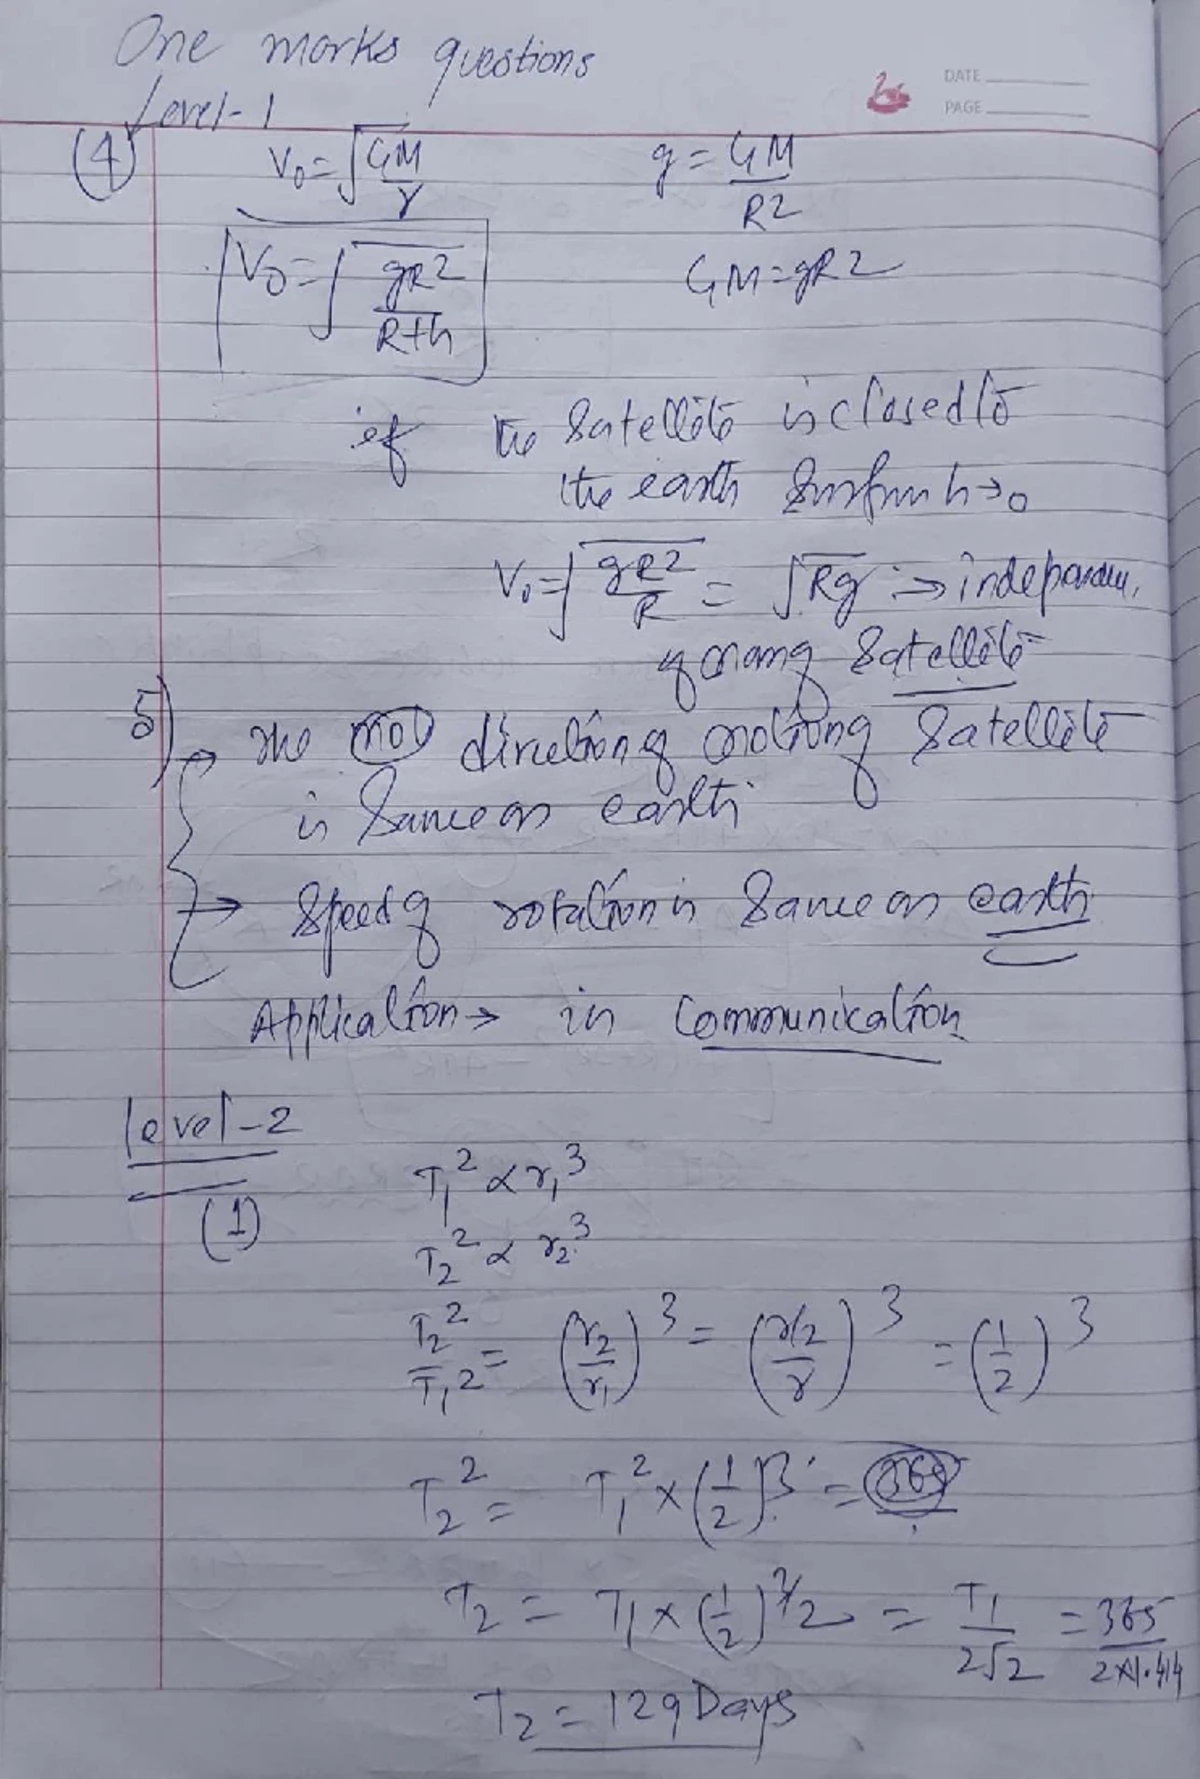 One marks questions
DATE
PAGE
Level-1
(4) V₀ = √GM/r g = GM/R2
V₀ = √gR2/R+h GM = gR2
if the Satellite is closed to
the earth h→0
V₀ = √gR2/R = √Rg → independen
of mang Satellite
5) → The direction of motiong Satellite
is Same as earth
→ Speed of rotation is Same as earth
Application → in Communication
level-2
(1) T₁² ∝ r₁³
T₂² ∝ r₂³
T₂²/T₁² = (r₂/r₁)³ = (r/2/r)³ = (1/2)³
T₂² = T₁² × (1/2)³ =
T₂ = T₁ × (1/2)^3/2 = T₁/2√2 = 365/2×1.414
T₂ = 129 Days